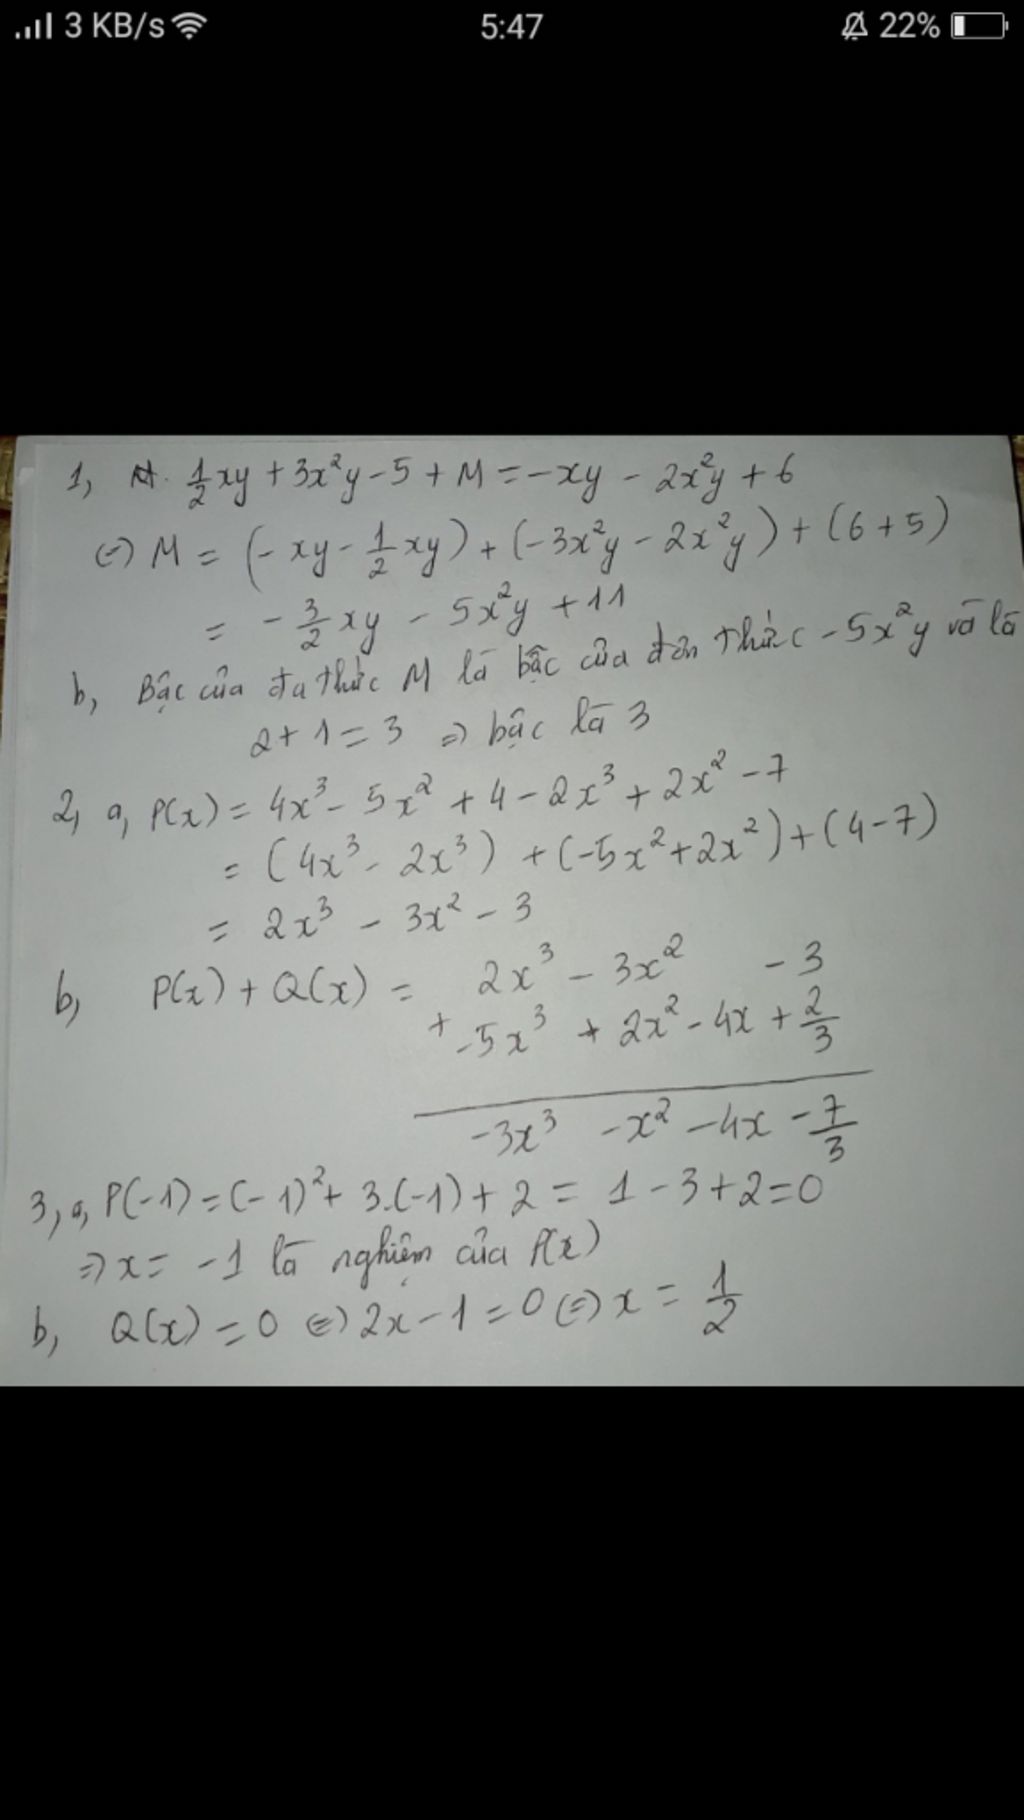 3 KB/s 5:47 22%
1, a. 1/2 xy + 3x²y - 5 + M = -xy - 2x²y + 6
(=) M = (-xy - 1/2 xy) + (-3x²y - 2x²y) + (6 + 5)
= -3/2 xy - 5x²y + 11
b, Bậc của đa thức M là bậc của đơn thức -5x²y và là
2 + 1 = 3 => bậc là 3
2, a, P(x) = 4x³ - 5x² + 4 - 2x³ + 2x² - 7
= (4x³ - 2x³) + (-5x² + 2x²) + (4 - 7)
= 2x³ - 3x² - 3
b, P(x) + Q(x) = 2x³ - 3x² - 3
+ -5x³ + 2x² - 4x + 2/3
-3x³ - x² - 4x - 7/3
3, a, P(-1) = (-1)² + 3.(-1) + 2 = 1 - 3 + 2 = 0
=> x = -1 là nghiệm của P(x)
b, Q(x) = 0 (=) 2x - 1 = 0 (=) x = 1/2